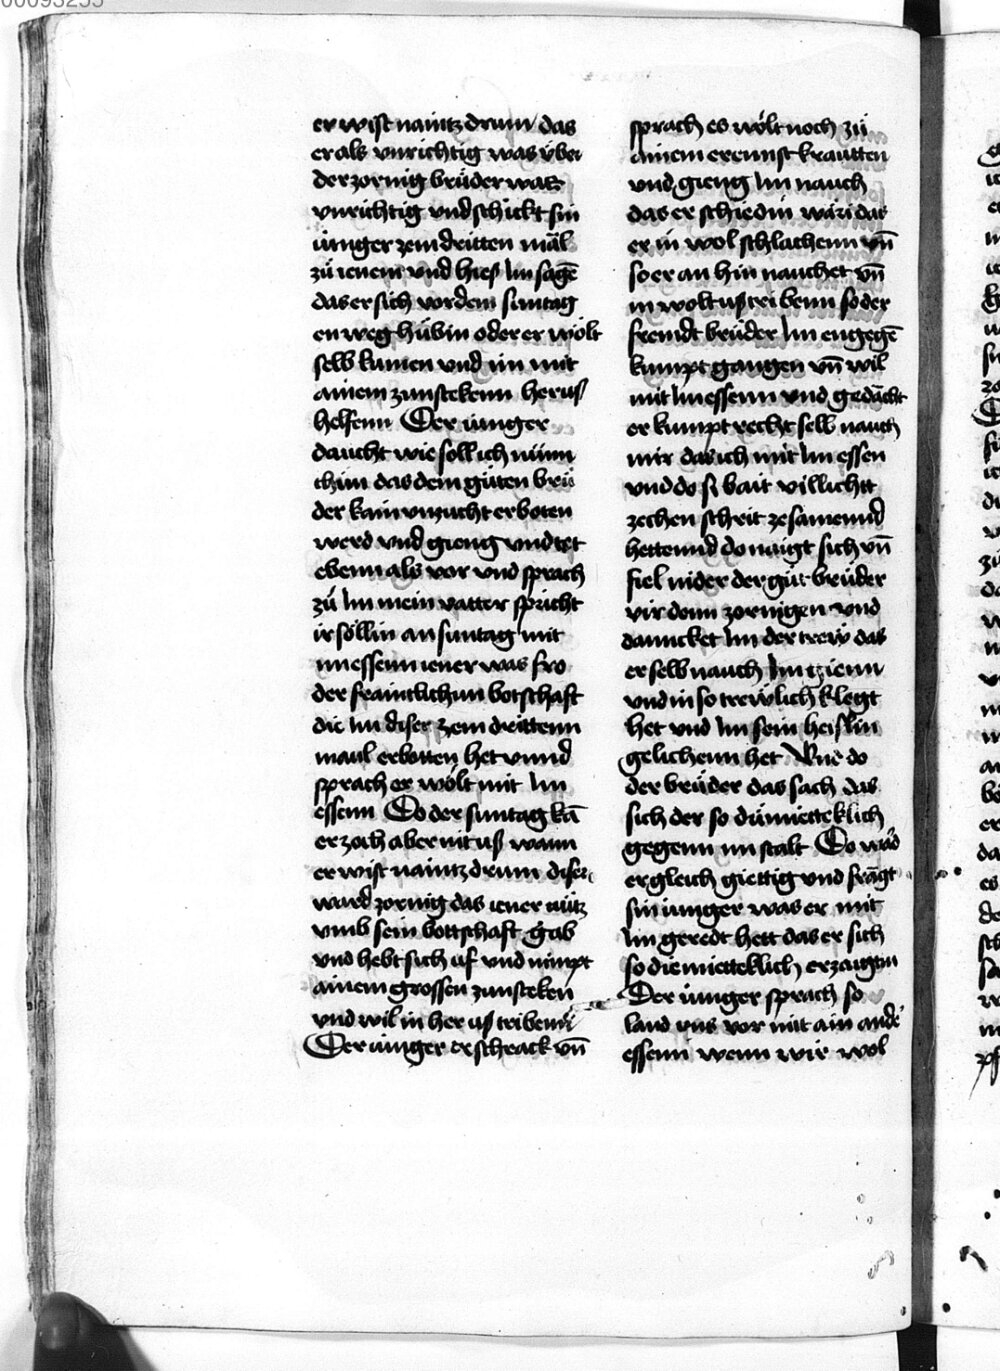 00093255
er wist naintz drum das
er als vnrichtig was vber
der zornig brüder was
vnrichtig vnd schickt sin
iunger zem dritten mäl
zü ienem vnd hies im sagē
das er sich vor dem suntag
en weg hübin oder er wölt
selb kumen vnd im mit
ainem zunstekenn herus
helfenn Der iunger
daucht wie soll ich nünn
thun das dem güten brü
der kain vnzucht erboten
werd vnd gieng vnd tet
ebenn als vor vnd sprach
zü im mein vatter spricht
ir söllin an suntag mit
im essenn iener was fro
der fraintlichun botschaft
die im diser zem drittenn
maul erbotten het vnnd
sprach er wölt mit im
essenn Do der suntag kā
er zoch aber nit uß wann
er wist naintz drum diser
ward zornig das iener nütz
vmb sein bottschaft gab
vnd hebt sich uf vnd nimpt
ainem grossen zunsteken
vnd wil in her uß tribenn
Der iunger erschrack vn̄
sprach es wölt noch zü
ainem erennst krautten
vnd gieng im nauch
das er schiedin wäri das
er in wol schlachenn vn̄
so er an hin nauchet vn̄
in wolt uß tribenn so der
fremdt brüder im engegē
kumpt gangen vn̄ wil
mit im essenn vnd gedächt
er kumpt recht selb nauch
mir das ich mit im essen
vnd do si bait villichtt
zechen schrit zesamennd
hettennd do naigt sich vn̄
fiel nider der güt brüder
vir denn zornigen vnd
danncket im der trew das
er selb nauch im gienn
vnd in so trewlich klegt
het vnd im sein heislin
gelichenn het Vnd do
der brüder das sach das
sich der so dümietteklich
gegenn im stalt Do ward
er gleich giettig vnd frägt
sin iunger was er mit
im geredt hett das er sich
so diemietteklich erzaigtin
Der iunger sprach so
land vns vor mit ain ander
essenn wenn wir wol